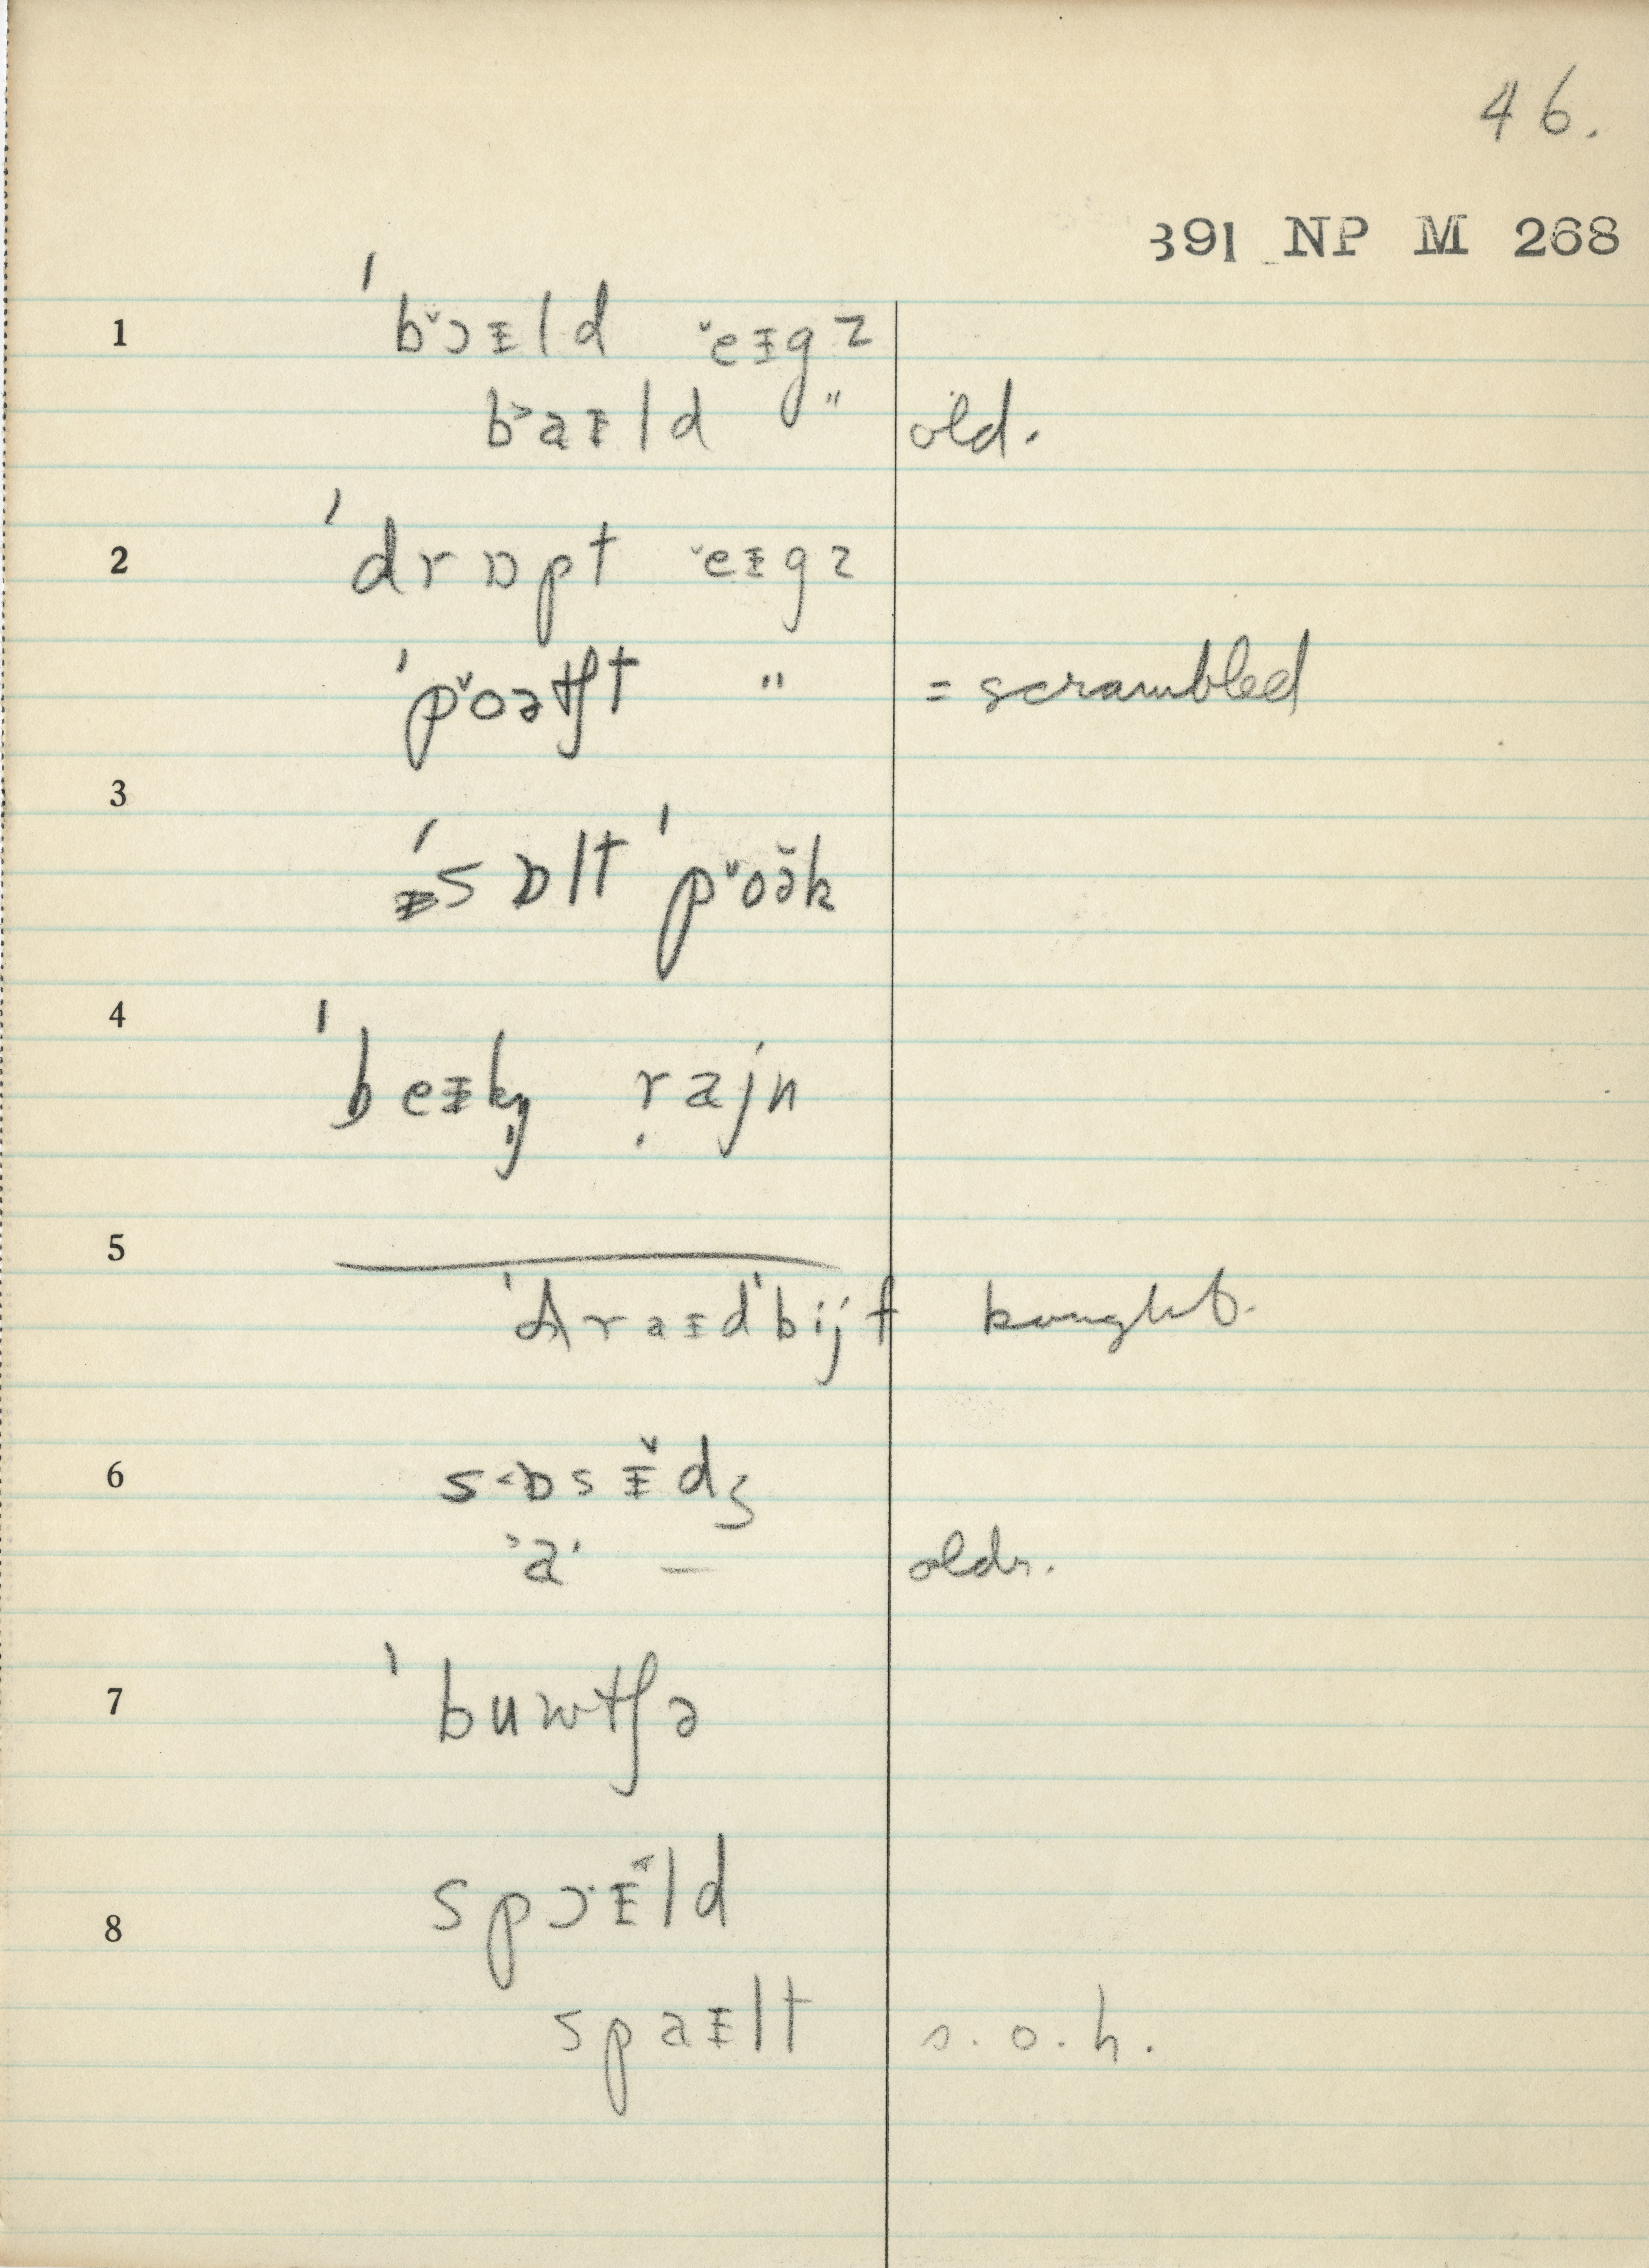 46.
391 NP M 268
1 ˈbɔ̌ᵻld ě​ᵻgz
baᵻld " old.
2 ˈdrɒpt ěᵻgz
ˈpǒətʃt " = scrambled
3 ˈsɒlt ˈpǒə̆k
4 ˈbeᵻkŋ̩ rajn
5 ˈʌraᵻdˈbijf bought.
6 sɒsᵻ̌dʒ
a – oldr.
7 ˈbuwtʃə
8 spɔᵻld
spaᵻlt s.o.h.